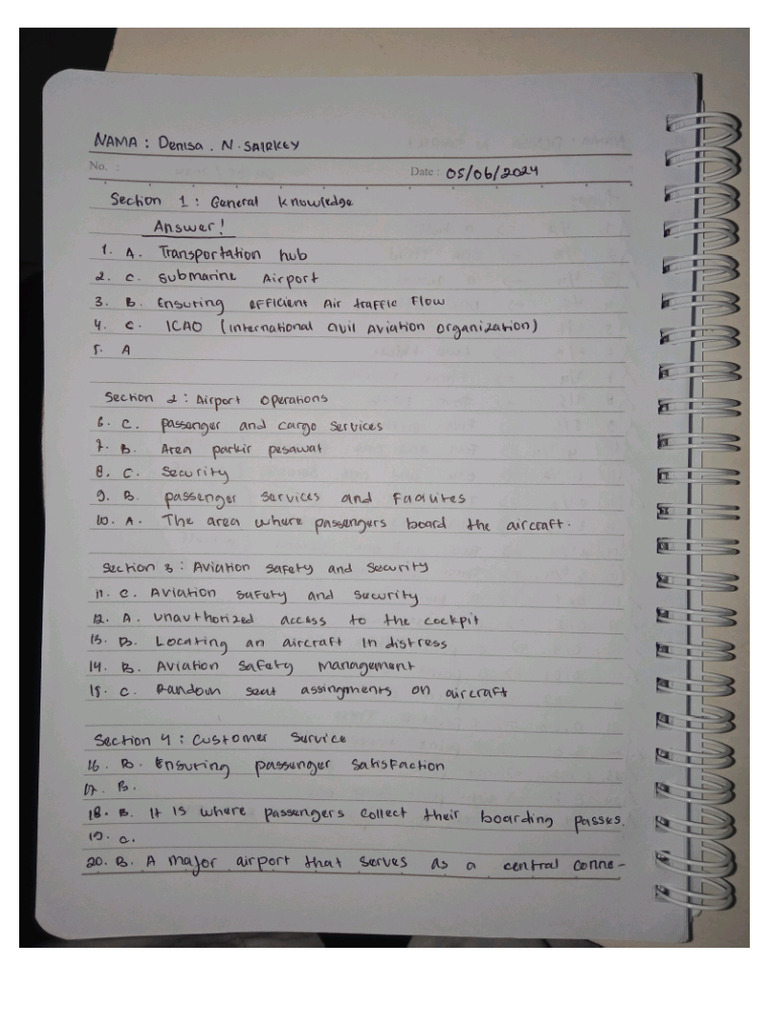 NAMA : Denisa . N. SAIRKEY
No. : Date : 05/06/2024
Section 1 : General knowledge
Answer!
1. A. Transportation hub
2. C. Submarine Airport
3. B. Ensuring efficient Air traffic Flow
4. C. ICAO (International Civil Aviation Organization)
5. A
Section 2 : Airport Operations
6. C. passenger and cargo services
7. B. Area parkir pesawat
8. C. Security
9. B. passenger services and
10. A. The area where passengers board the aircraft.
Section 3 : Aviation Safety and Security
11. C. Aviation safety and security
12. A. Unauthorized access to the cockpit
13. B. Locating an aircraft In distress
14. B. Aviation Safety Management
15. C. Random seat assingments on aircraft
Section 4 : Customer Service
16. B. Ensuring passenger satisfaction
17. B.
18. B. It Is where passengers collect their boarding passes.
19. C.
20. B. A major airport that serves as a central conne-